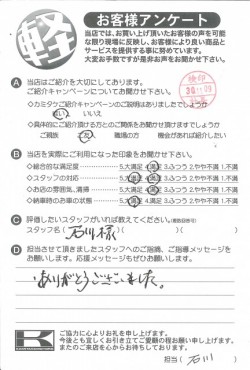 軽
お客様アンケート
当店では、お買い上げ頂いたお客様の声を可能
な限り現場に反映し、お客様により良い商品と
サービスを提供する事に努めています。
大変お手数ですが是非お声をお聞かせ下さい。
検印
A 当店はご紹介を大切にしてあります。
ご紹介キャンペーンについてお聞かせ下さい。
◇カミタケご紹介キャンペーンのご説明はありましたでしょうか
はい いいえ
◇具体的にご紹介頂ける方とのご関係をお聞かせ頂けますでしょうか
ご親族 ご友人 職場の方 機会があれば紹介したい
B 当店を実際にご利用になった印象をお聞かせ下さい。
◇総合的な満足度 5.大満足 4.満足 3.ふつう 2.やや不満 1.不満
◇スタッフの対応 5.大満足 4.満足 3.ふつう 2.やや不満 1.不満
◇お店の雰囲気、清掃 5.大満足 4.満足 3.ふつう 2.やや不満 1.不満
◇納車時のお車の状態 5.大満足 4.満足 3.ふつう 2.やや不満 1.不満
C 評価したいスタッフがいれば教えてください。
スタッフ名( 石川様 )
D 担当させて頂きましたスタッフへのご指摘、ご指導メッセージを
お願いします。応援メッセージもぜひお願いします。
ありがとうございました。
K
ご協力に心よりお礼を申し上げます。
今後とも宜しくお引き立てご愛顧の程お願い申し上げます。
またのご来店を心からお待ちしております。
担当( 石川 )